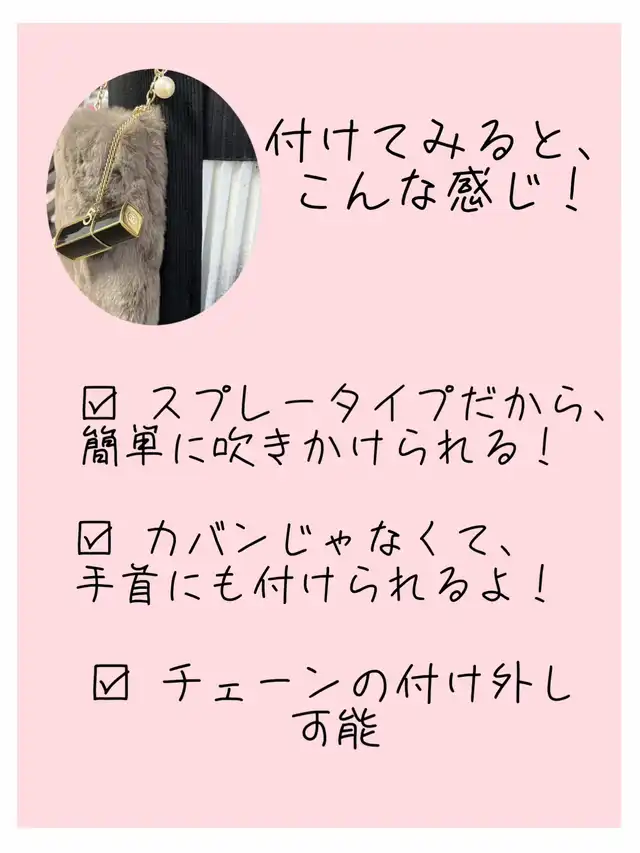 付けてみると、
こんな感じ！
☑ スプレータイプだから、
簡単に吹きかけられる！
☑ カバンじゃなくて、
手首にも付けられるよ！
☑ チェーンの付け外し
可能